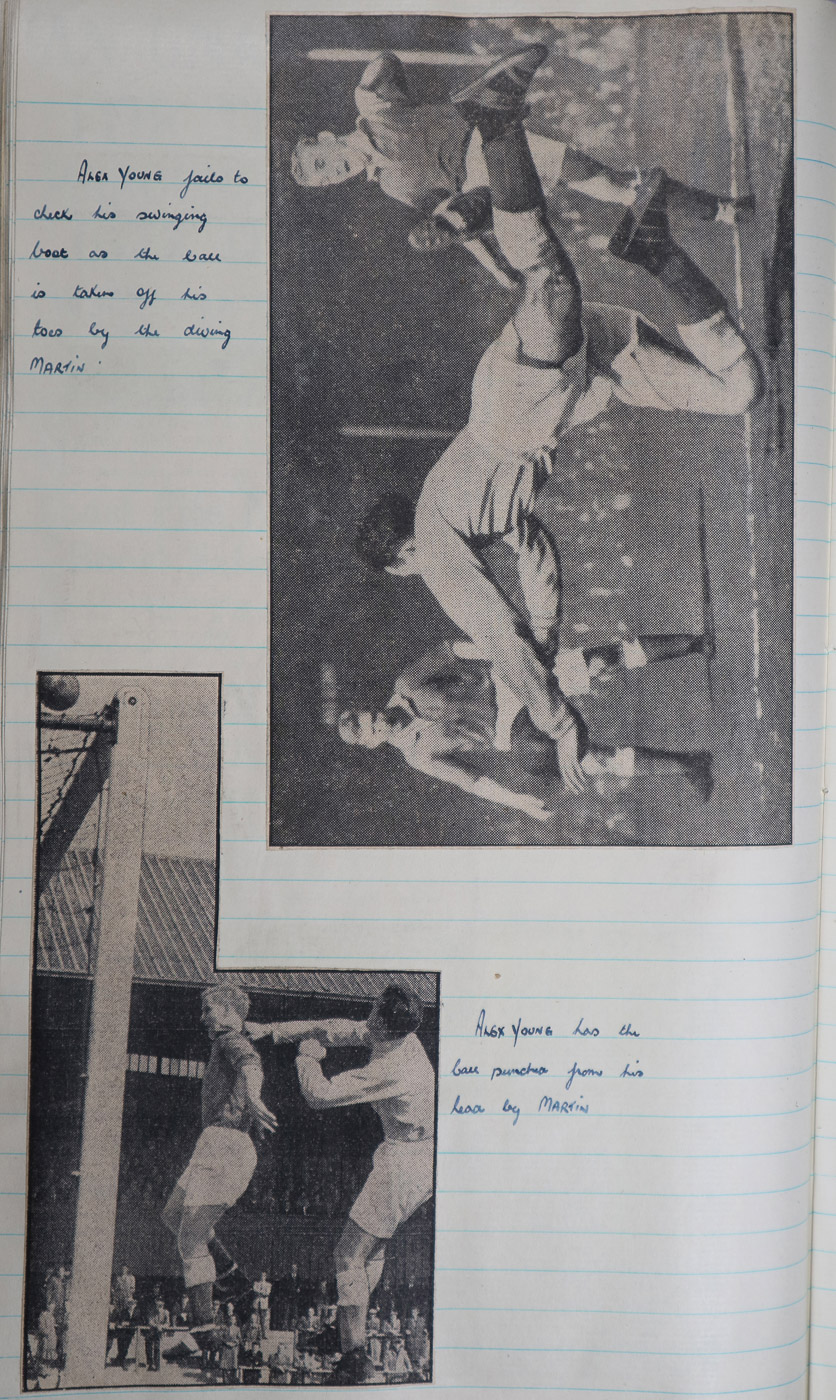 ALEX YOUNG fails to
check his swinging
boot as the ball
is taken off his
toes by the diving
MARTIN.
ALEX YOUNG has the
ball punched from his
head by MARTIN